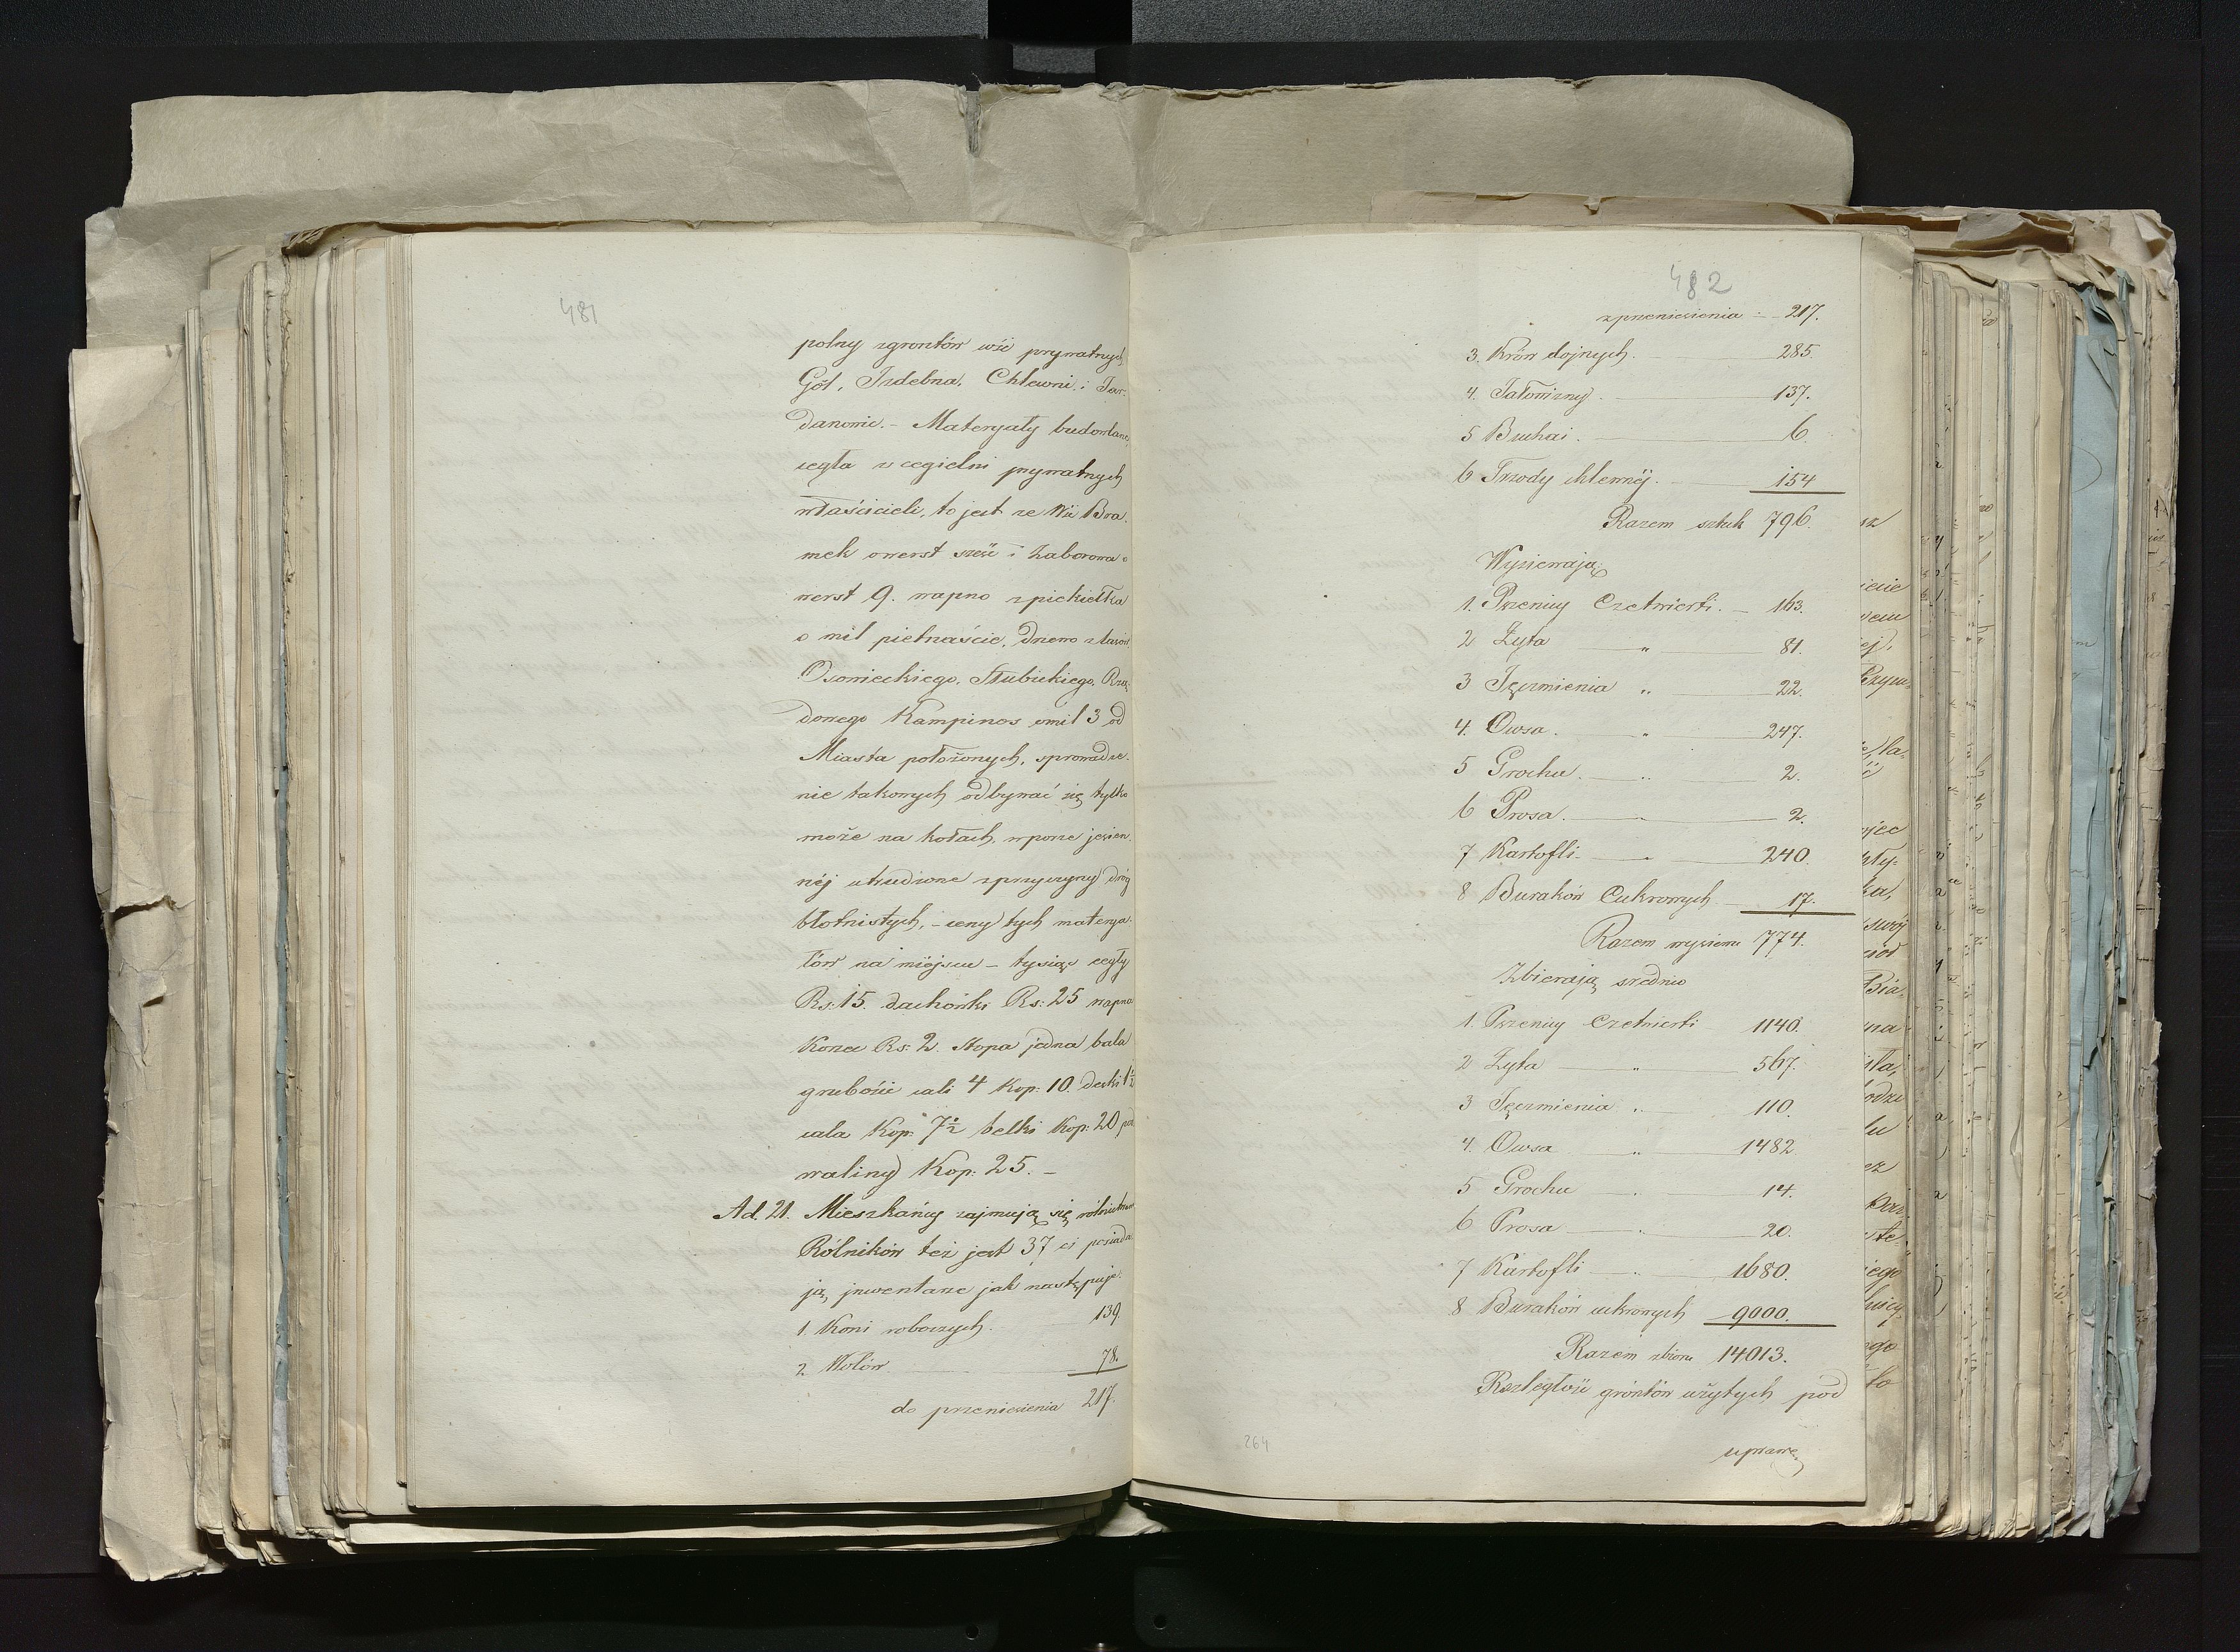 481
polny zgrontów wśi prywatnych
Gół, Izdebna, Chlewni, i Jor-
danowic. – Materyały budowlane,
cegła z cegielni prywatnych
właścicieli, to jest ze Wśi Bra-
mek owerst sześć i Zaborowa o
werst 9. wapno zpiekiełka
o mil pietnaście, Drzewo zlasów
Osowieckiego, Słubickiego, Rzą-
dowego Kampinos omil 3 od
Miasta położonych, sprowadze-
nie takowych odbywać się tylko
może na kołach, wporze jesien-
néj utrudzone zprzyczyny dróg
błotnistych, – ceny tych materya-
łów na miéjscu – tysiąc cegły
Rs: 15. dachówki Rs: 25 wapna
Korzec Rs: 2. Stopa jedna bala
grubości cali 4 Kop: 10. deski 1½
cala Kop: 7½ belki Kop: 20 pod
waliny Kop: 25. –
Ad. 21. Mieszkańcy zajmują się rólnictwem
Rólników téż jest 37 ci posiada-
ją, jnwentarze jak następuje:
1. Koni roboczych. 139.
2 Wołów. 78.
do przeniesienia 217.
482
zprzeniesienia – 217.
3. Krów dojnych. 285.
4. Jałowizny. 137.
5 Buchai. 6.
6 Trzody chlewnéj. 154
Razem sztuk 796.
Wysiewają:
1. Pszenicy Czetwierti. – 163.
2 Żyta " 81.
3 Jęczmienia " 22.
4. Owsa. " 247.
5 Grochu. " 2.
6 Prosa. " 2.
7 Kartofli. " 240.
8 Buraków Cukrowych 17.
Razem wysiewu 774.
Zbierają srednio
1. Pszenicy Czetwierti 1140.
2 Żyta " 567.
3 Jęczmienia " 110.
4. Owsa " 1482
5 Grochu " 14.
6 Prosa " 20.
7 Kartofli " 1680.
8 Buraków cukrowych 9000.
Razem zbioru 14013.
Rozległość gróntów użytych pod
uprawę
264